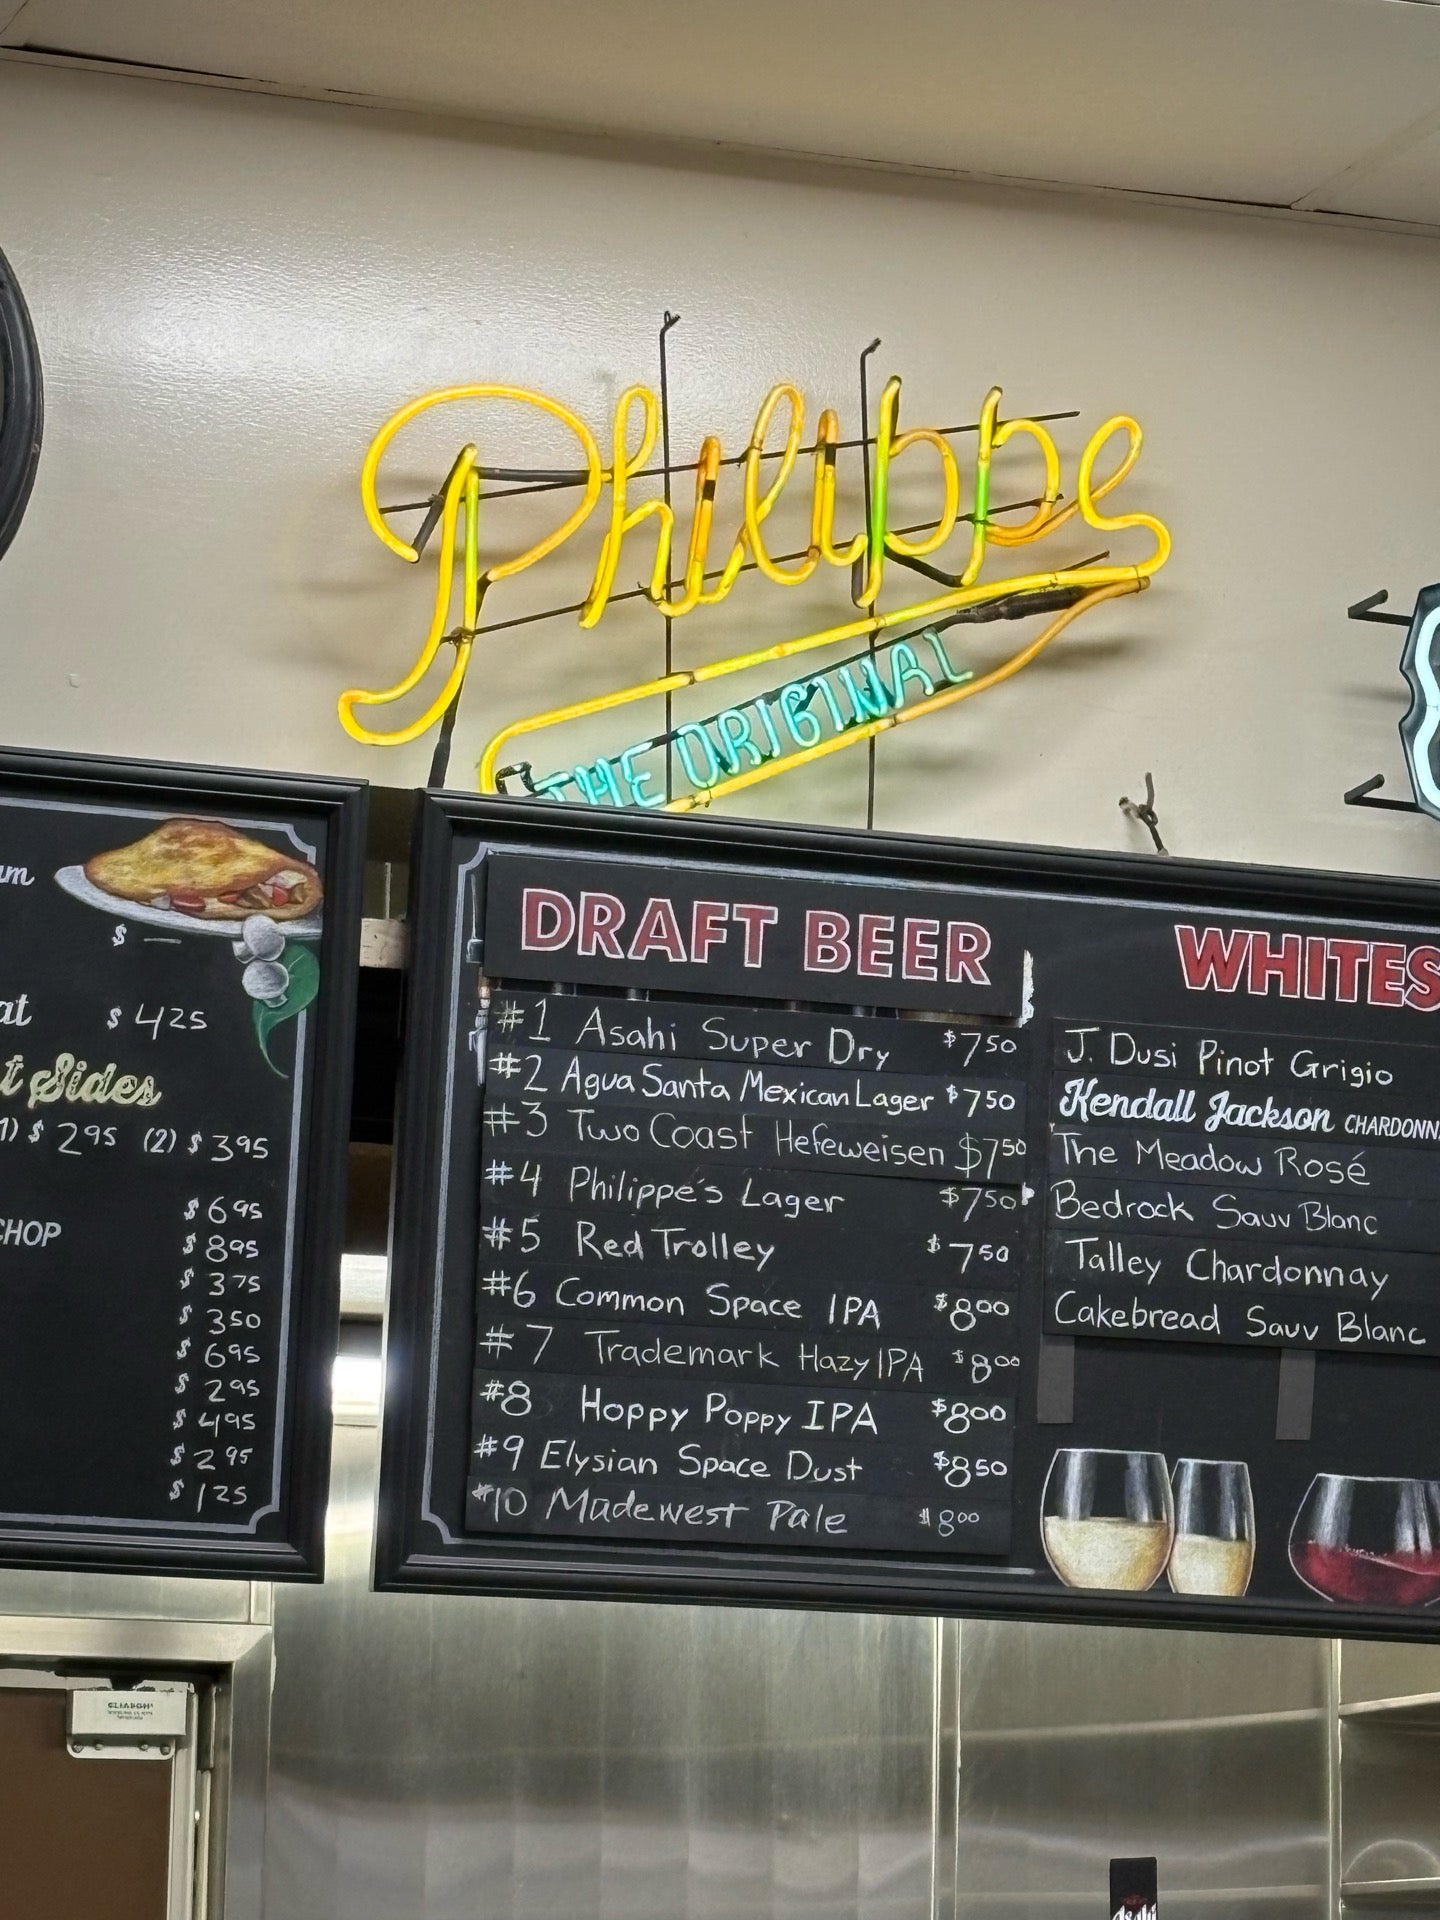 Philippe
THE ORIGINAL
$ —
$ 4.25
t Sides
1) $ 2.95 (2) $ 3.95
$ 6.95
CHOP
$ 8.95
$ 3.75
$ 3.50
$ 6.95
$ 2.95
$ 4.95
$ 2.95
$ 1.25
DRAFT BEER
#1 Asahi Super Dry $7.50
#2 Agua Santa Mexican Lager $7.50
#3 Two Coast Hefeweisen $7.50
#4 Philippe's Lager $7.50
#5 Red Trolley $7.50
#6 Common Space IPA $8.00
#7 Trademark Hazy IPA $8.00
#8 Hoppy Poppy IPA $8.00
#9 Elysian Space Dust $8.50
#10 Madewest Pale $8.00
WHITES
J. Dusi Pinot Grigio
Kendall Jackson CHARDONN
The Meadow Rosé
Bedrock Sauv Blanc
Talley Chardonnay
Cakebread Sauv Blanc
Asahi